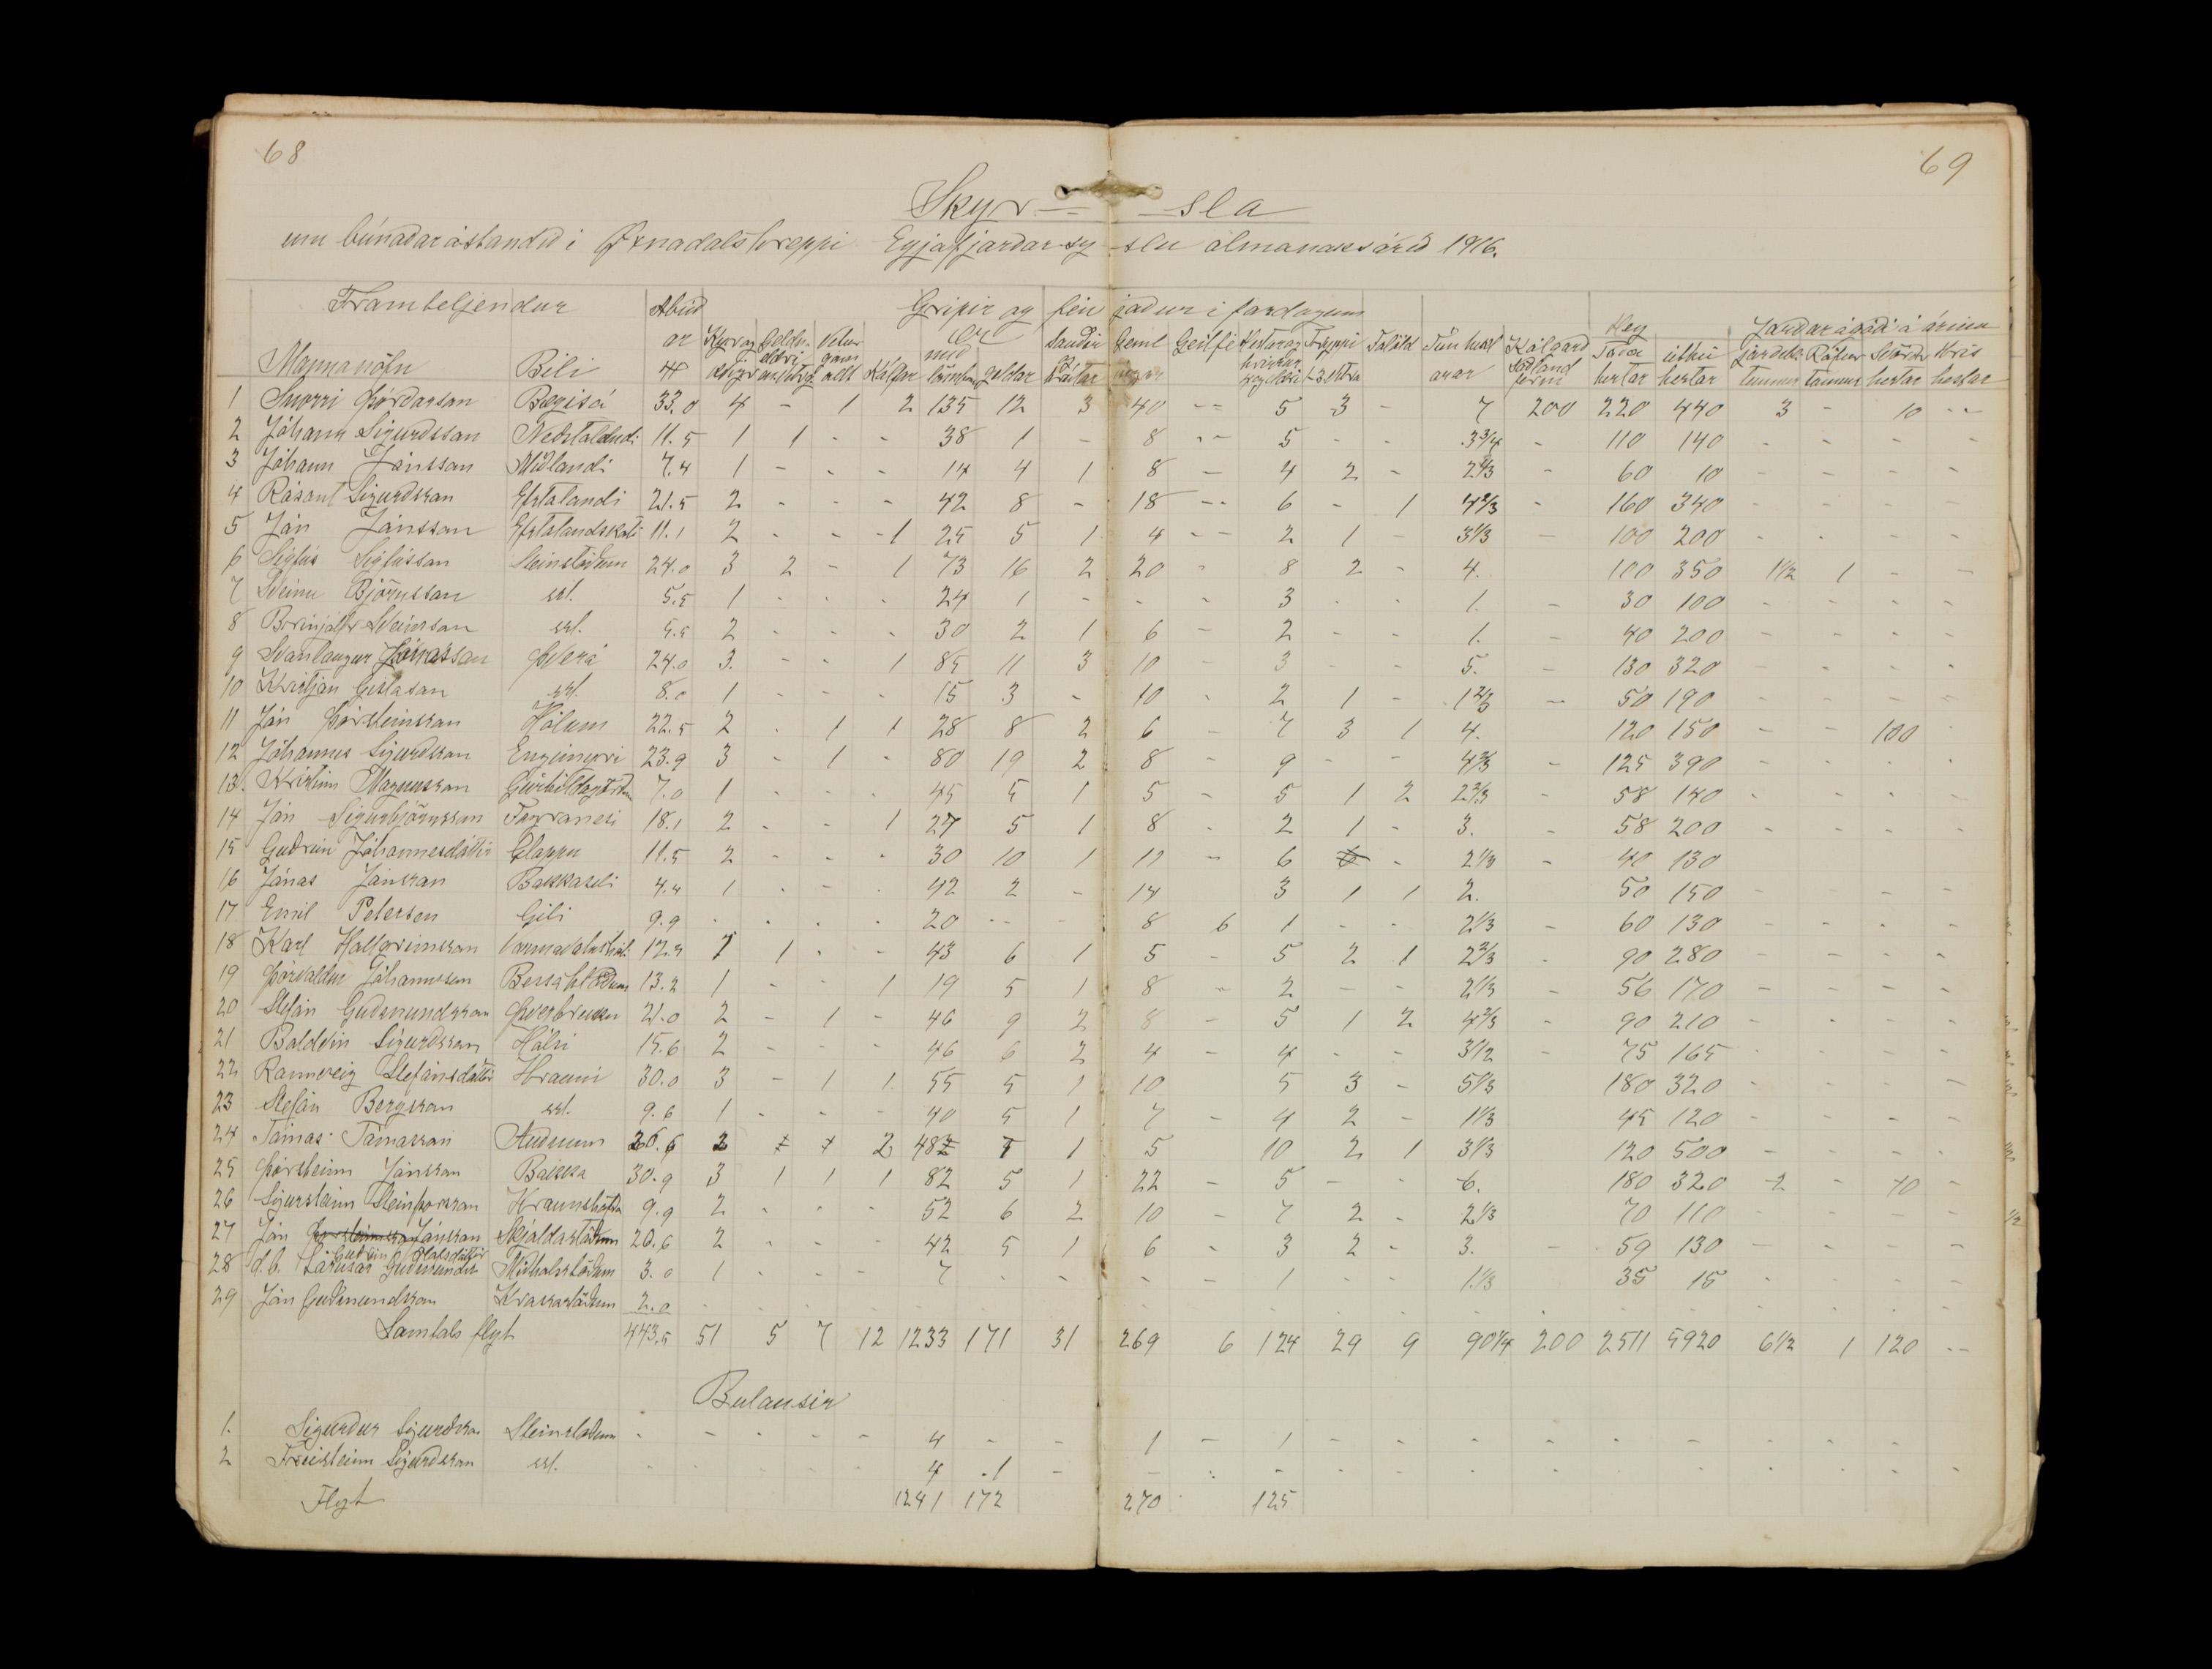 68
69
Skyr- -sla
um búnaðarástandið í Öxnadalshreppi Eyjafjarðar-sý slu almanaksárið 1916.
Framteljendur Ábúð Gripir og fén jaður í fardögum Hey Jarðar ágóði á árinu
Mannanöfn Bæli ar Kálfar með geldar Hrútar Geitfé Folöld Tún hart Kálgarð Taða hestar úthey hestar tunnur Rófur tunnur hestar Hrís hestar
1 Snorri Þórðarson Bægisá 33.0 4 - 1 2 135 12 3 40 -- 5 3 - 7 200 220 440 3 - 10 --
2 Jóhann Sigurðsson Neðstalandi 11.5 1 1 - - 38 1 - 8 -- 5 - - 3 3/4 - 110 140 - - - -
3 Jóhann Jónsson Miðlandi 7.4 1 - - - 14 4 1 8 - 4 2 - 2 2/3 - 60 10 - - - -
4 Rósant Sigurðsson Efstalandi 21.5 2 - - - 42 8 - 18 -- 6 - 1 4 2/3 - 160 340 - - - -
5 Jón Jónsson Efstalandskoti 11.1 2 - - 1 25 5 1 4 -- 2 1 - 3 1/3 - 100 200 - - - -
6 Sigfús Sigfússon Steinstöðum 24.0 3 2 - 1 73 16 2 20 - 8 2 - 4. 100 350 1 1/2 1 - -
7 Steinn Björnsson ssl. 5.5 1 - - - 24 1 - - - 3 - - 1. - 30 100 - - - -
8 Brinjólfr Sveinsson ssl. 5.5 2 - - - 30 2 1 6 - 2 - - 1. - 40 200 - - - -
9 Svanlaugur Jónasson Þverá 24.0 3. - - 1 85 11 3 10 - 3 - - 5. - 130 320 - - - -
10 Kristján Gíslason ssl. 8.0 1 - - - 15 3 - 10 - 2 1 - 1 2/3 - 50 190 - - - -
11 Jón Þorsteinsson Hólum 22.5 2 - 1 1 28 8 2 6 - 7 3 1 4. 120 150 - - 100 -
12 Jóhannes Sigurðsson Engimýri 23.9 3 - 1 - 80 19 2 8 - 9 - - 4 2/3 - 125 390 - - - -
13. Kristinn Magnússon 7.0 1 - - - 45 5 1 5 - 5 1 2 2 2/3 - 58 140 - - - -
14 Jón Sigurbjörnsson Fagranesi 18.1 2 - - 1 27 5 1 8 - 2 1 - 3. - 58 200 - - - -
15 Guðrún Jóhannesdóttir Gloppu 11.5 2 - - - 30 10 1 11 - 6 - 2 1/3 - 40 130
16 Jónas Jónsson Bakkaseli 4.4 1 - - - 42 2 - 14 3 1 1 2. 50 150 - - - -
17 Emil Petersen Gili 9.9 - - - - 20 -- - 8 6 1 - - 2 1/3 - 60 130 - - - -
18 Karl Hallgrímsson 12.3 1 1 - - 43 6 1 5 - 5 2 1 2 2/3 - 90 280 - - - -
19 Þorvaldur Jóhannsson Bessahlöðum 13.2 1 - - 1 19 5 1 8 - 2 - - 2 1/3 - 56 170 - - - -
20 Stefán Guðmundsson Þverbrekku 21.0 2 - 1 - 46 9 2 8 - 5 1 2 4 2/3 - 90 210 - - - -
21 Baldvin Sigurðsson Hálsi 15.6 2 - - - 46 6 2 4 - 4 - - 3 1/2 - 75 165 - - - -
22 Rannveig Stefánsdóttir Hrauni 30.0 3 - 1 1. 55 5 1 10 5 3 - 5 1/3 180 320 - - - -
23 Stefán Bergsson ssl. 9.6 1 - - - 40 5 1 7 - 4 2 - 1 1/3 45 120 - - - -
24 Tómas Tómasson Auðnum 26.6 2 2 48 1 5 10 2 1 3 1/3 120 500 - - - -
25 Þorsteinn Jónsson Bakka 30.9 3 1 1 1 82 5 1 22 - 5 - - 6. 180 320 2 - 10 -
26 Sigursteinn Steinþorsson Hraunshöfða 9.9 2 - - - 52 6 2 10 - 7 2 - 2 1/3 70 110 - - - -
27 Jón Þorsteinsson Jónsson Skjaldarstöðum 20.6 2 - - - 42 5 1 6 - 3 2 - 3. - 59 130 - - - -
Guðrún Hallsdóttir
28 d.b. Lárusar Guðmunds Miðhálsstöðum 3.0 1 - - - 7 - - - - 1 - - 1 1/3 35 15 - - - -
29 Jón Guðmundsson Krossastöðum 2.0 - - - - - - - - - - - - - - - - - - - -
Samtals flyt 443.5 51 5 7 12 1233 171 31 269 6 124 29 9 90 1/4 200 2511 5920 6 1/2 1 120 --
Bulausir
1. Sigurður Sigurðsson Steinstöðum - - - - - 4 - - 1 - 1 - - - - - - - - -
2 Freisteinn Sigurðsson ssl. - - - - - 4 1 - - - - - - - - - - - - - -
Flyt 1241 172 270 125